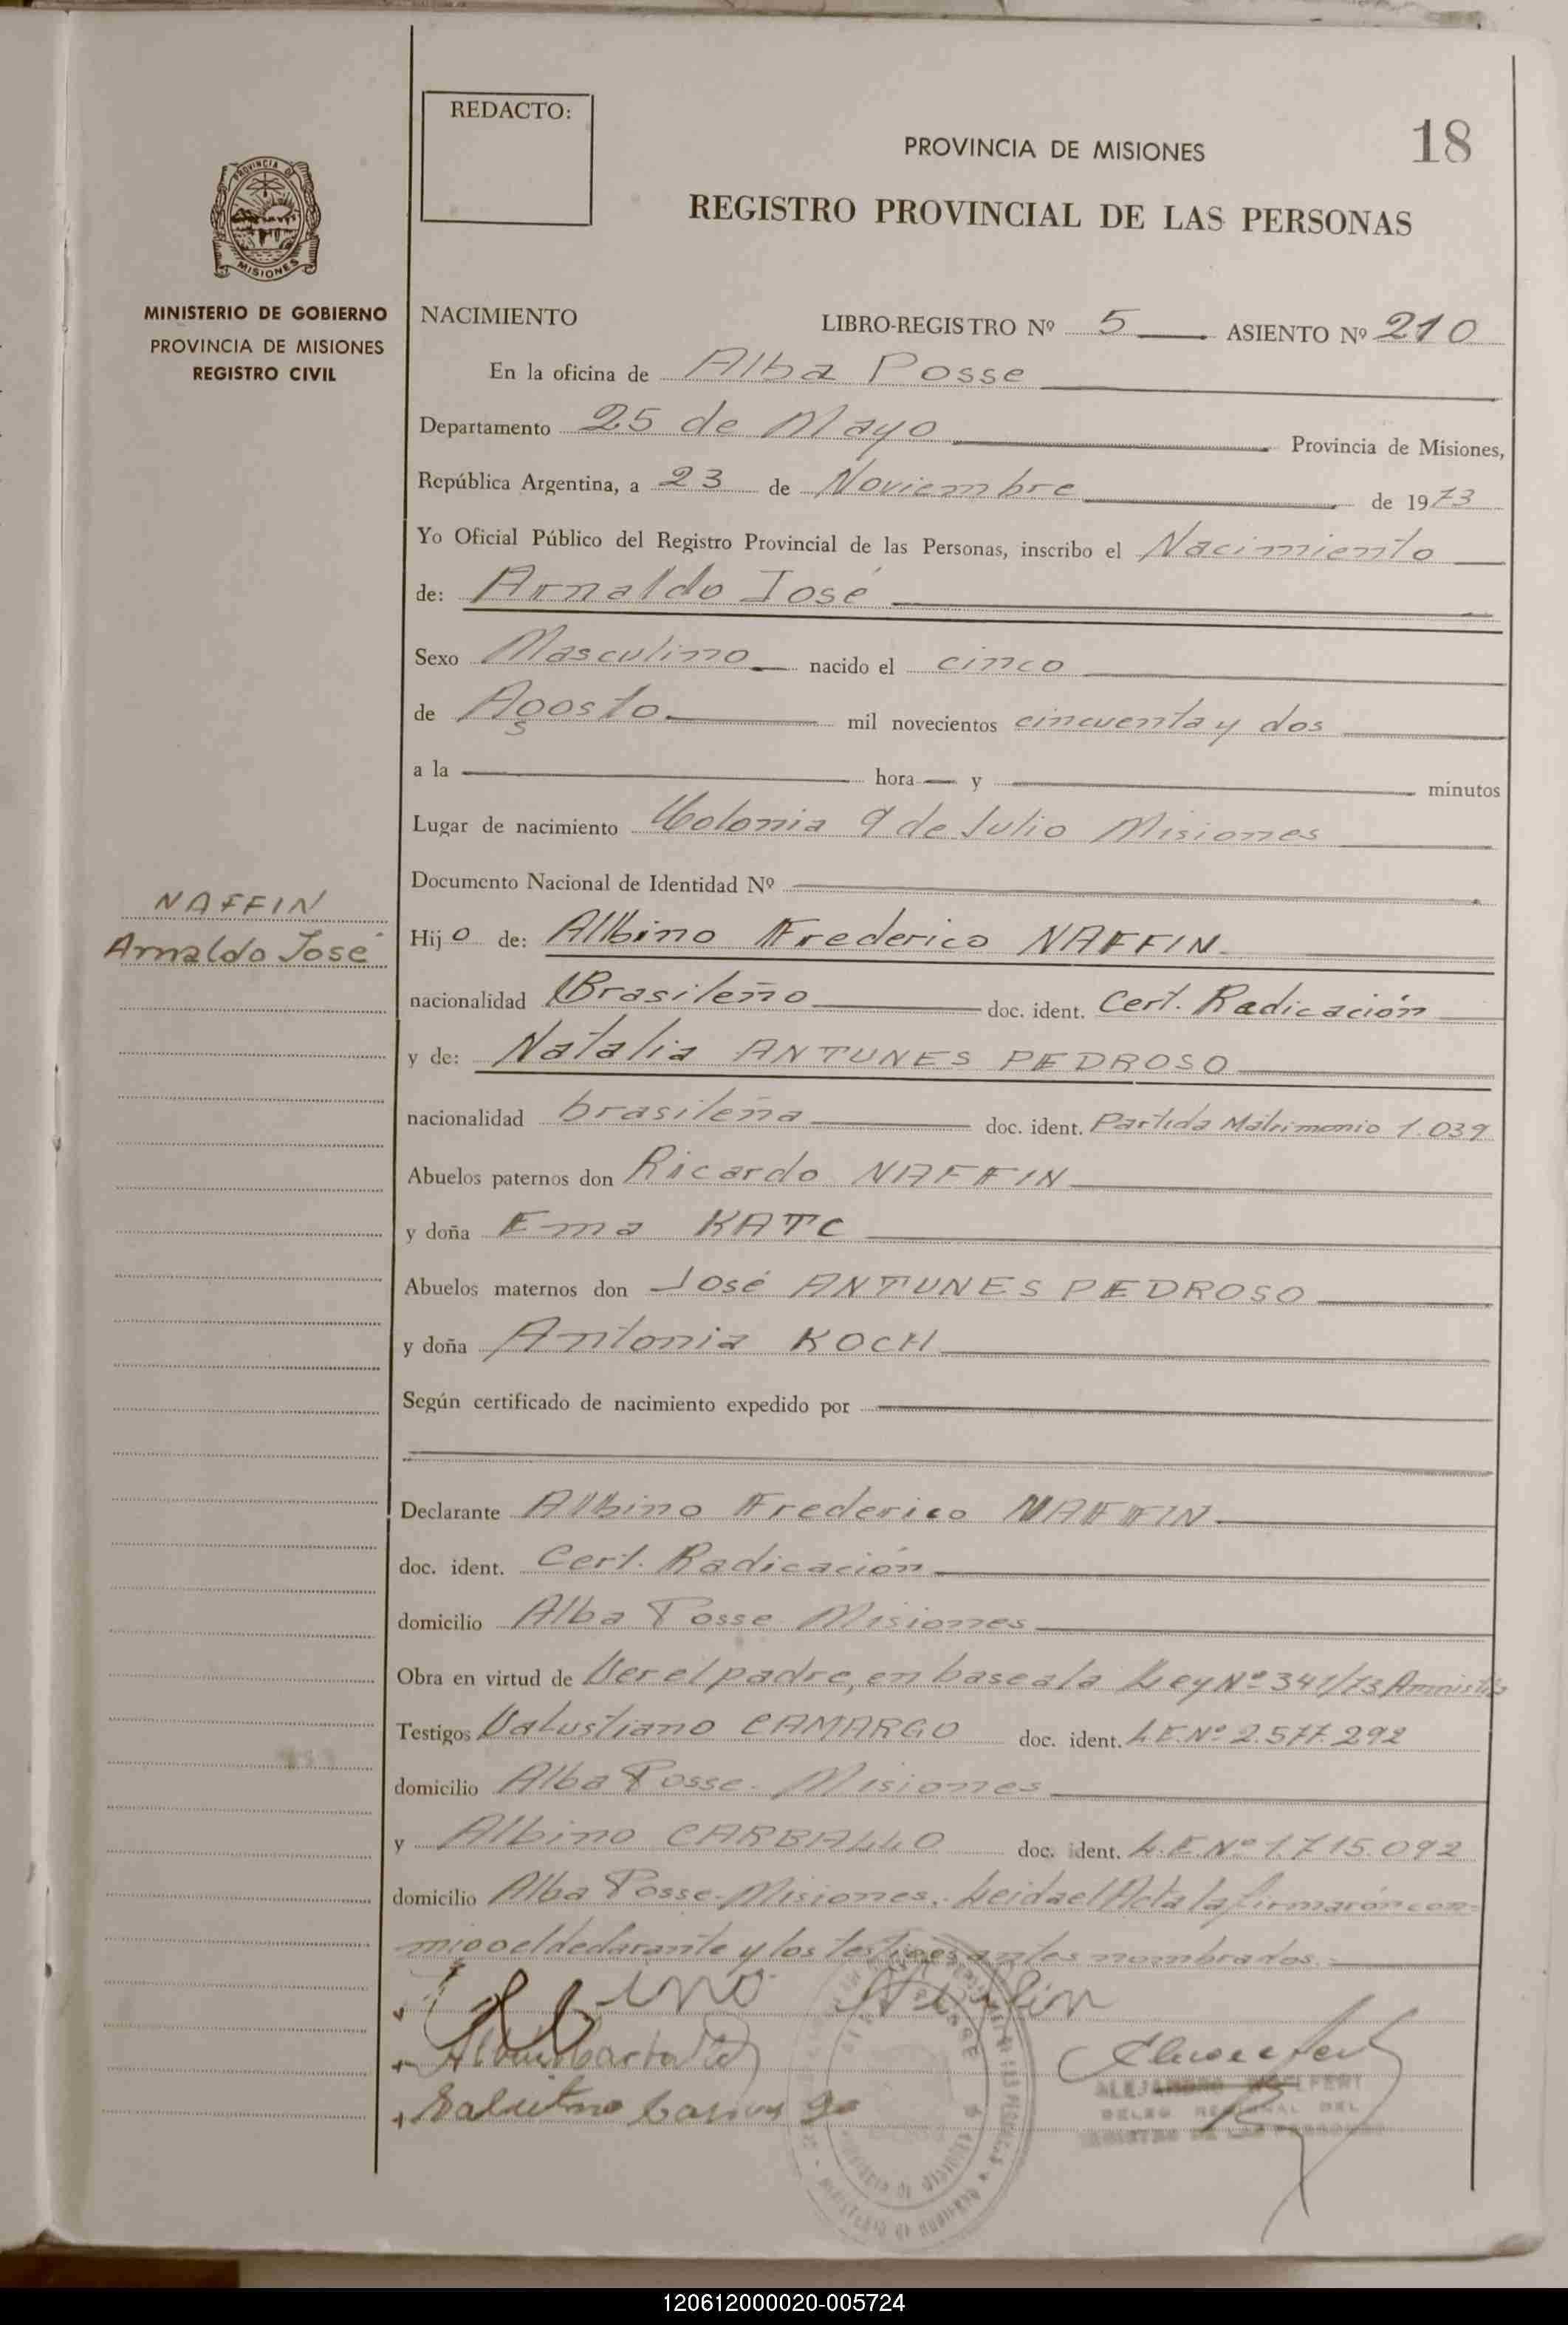 REDACTO:
18
PROVINCIA DE MISIONES
REGISTRO PROVINCIAL DE LAS PERSONAS
PROVINCIA DE
MISIONES
MINISTERIO DE GOBIERNO
PROVINCIA DE MISIONES
REGISTRO CIVIL
NACIMIENTO LIBRO-REGISTRO Nº 5 ASIENTO Nº 210
En la oficina de Alba Posse
Departamento 25 de Mayo Provincia de Misiones,
República Argentina, a 23 de Noviembre de 1973
Yo Oficial Público del Registro Provincial de las Personas, inscribo el Nacimiento
de: Arnaldo José
Sexo Masculino nacido el cinco
de Agosto mil novecientos cincuenta y dos
a la hora y minutos
Lugar de nacimiento Colonia 9 de Julio Misiones
Documento Nacional de Identidad Nº
NAFFIN
Arnaldo José
Hijo de: Albino Frederico NAFFIN
nacionalidad Brasileño doc. ident. Cert. Radicación
y de: Natalia ANTUNES PEDROSO
nacionalidad brasileña doc. ident. Partida Matrimonio 1.039
Abuelos paternos don Ricardo NAFFIN
y doña Ema KATC
Abuelos maternos don José ANTUNES PEDROSO
y doña Antonia KOCH
Según certificado de nacimiento expedido por
Declarante Albino Frederico NAFFIN
doc. ident. Cert. Radicación
domicilio Alba Posse Misiones
Obra en virtud de Ser el padre, en base a la Ley Nº 341/73 Amnistía
Testigos Salustiano CAMARGO doc. ident. L.E.Nº 2.577.292
domicilio Alba Posse - Misiones
y Albino CARBALLO doc. ident. L.E.Nº 1.715.092
domicilio Alba Posse - Misiones. Leida el Acta la firmarón con-
migo el declarante y los testigos antes nombrados.
Albino Naffin
ALEJANDRO
DELEG REGIONAL DEL
REGISTRO DE LAS PERSONAS
120612000020-005724